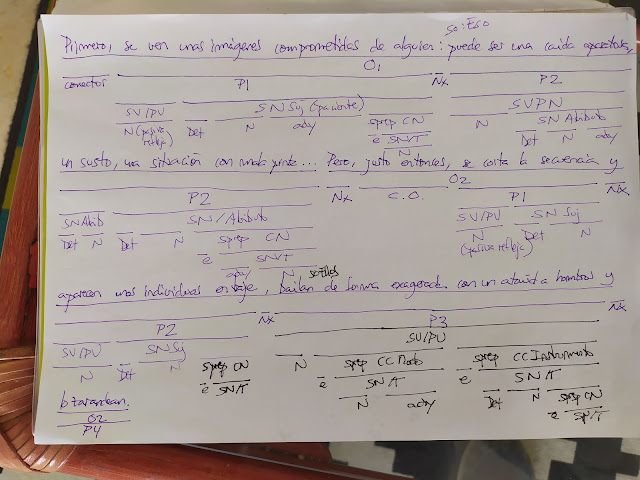 SO: Eso
Primero, se ven unas imágenes comprometidas de alguien: puede ser una caída aparatosa,
O1
conector P1 Nx P2
SV/PV SN Suj (paciente) SVPN
N (pasiva refleja) Det N ady sprep CN N SN Atributo
e SN/T Det N ady
N
un susto, una situación con mala pinta... Pero, justo entonces, se corta la secuencia y
O2
P2 Nx C.O. P1 Nx
SN Atrib SN/Atributo SV/PV SN Suj
Det N Det N sprep CN N Det N
(pasiva refleja)
e SN/T
ady N
sencillos
aparecen unos individuos en traje, bailan de forma exagerada con un ataúd a hombros y
P2 Nx P3 Nx
SV/PV
SV/PV SN Suj N sprep CC Modo sprep CC Instrumento
N Det N sprep CN e SN/T e SN/T
e SN/T N ady Det N sprep CN
e SP/T
lo zarandean.
O2
P4